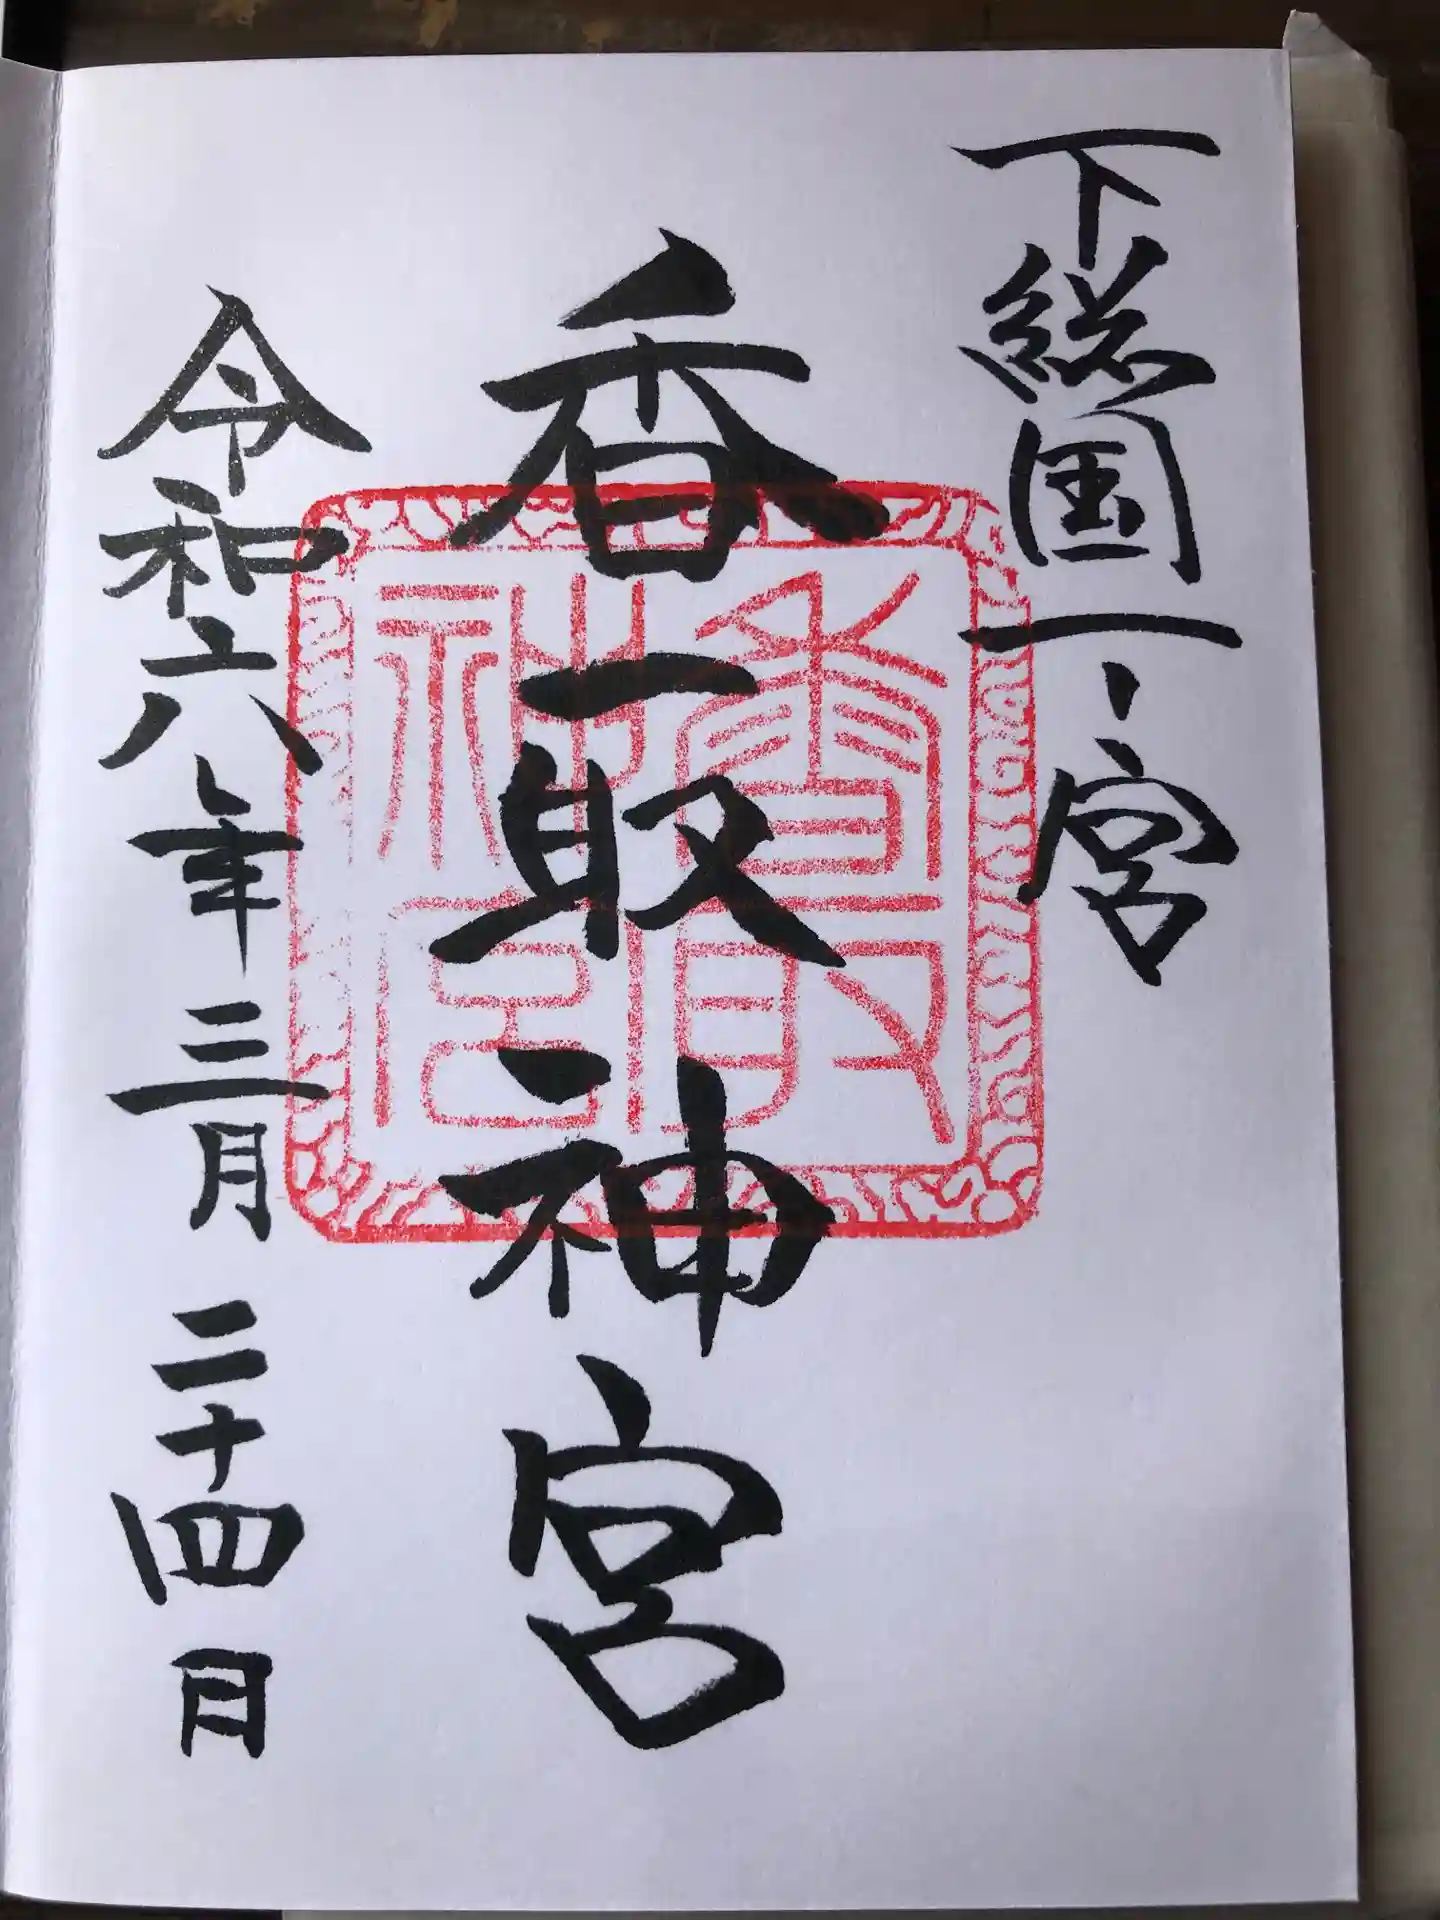 下総国一宮
香取神宮
令和六年三月二十四日
香取
神宮